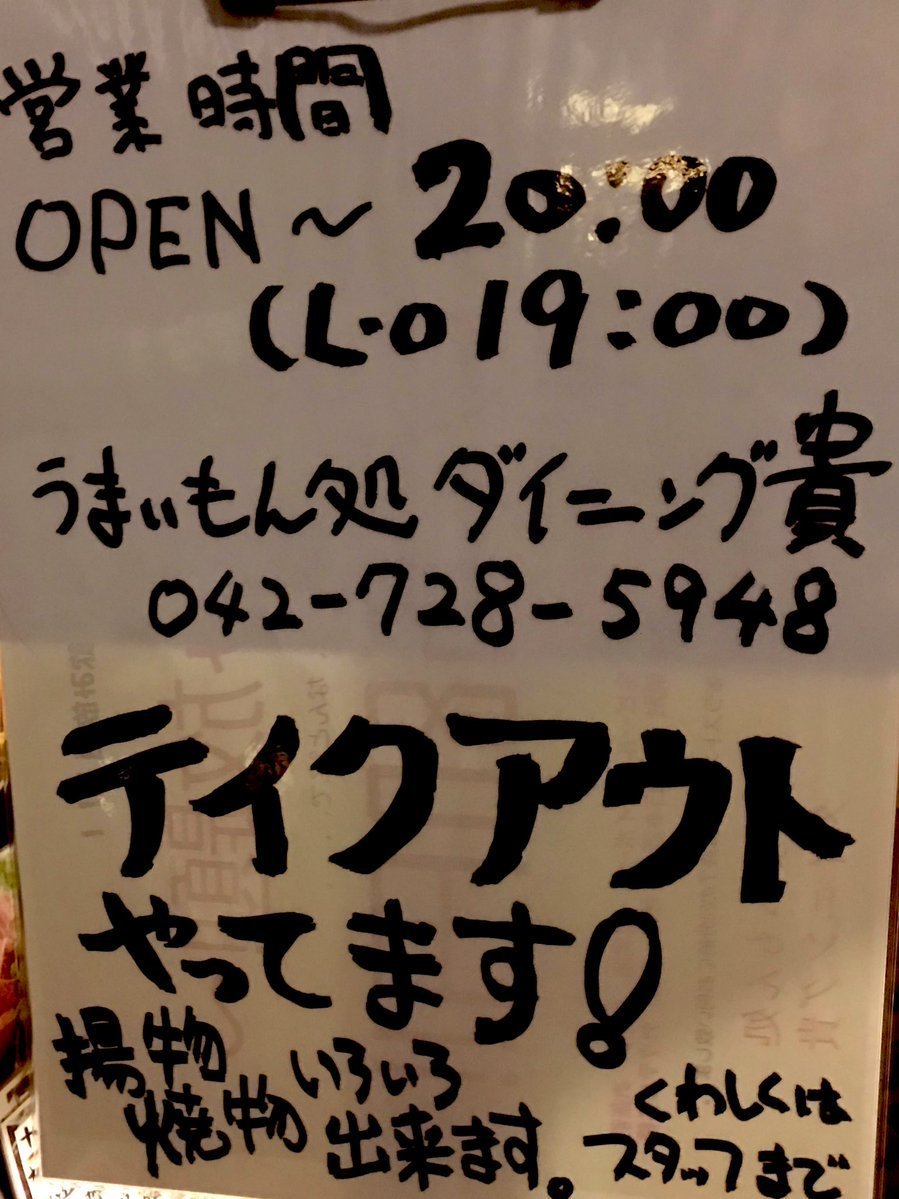 営業時間
OPEN～20:00
(L・O 19:00)
うまいもん処 ダイニング貴
042-728-5948
テイクアウト
やってます!
揚物
焼物
いろいろ
出来ます。
くわしくは
スタッフまで